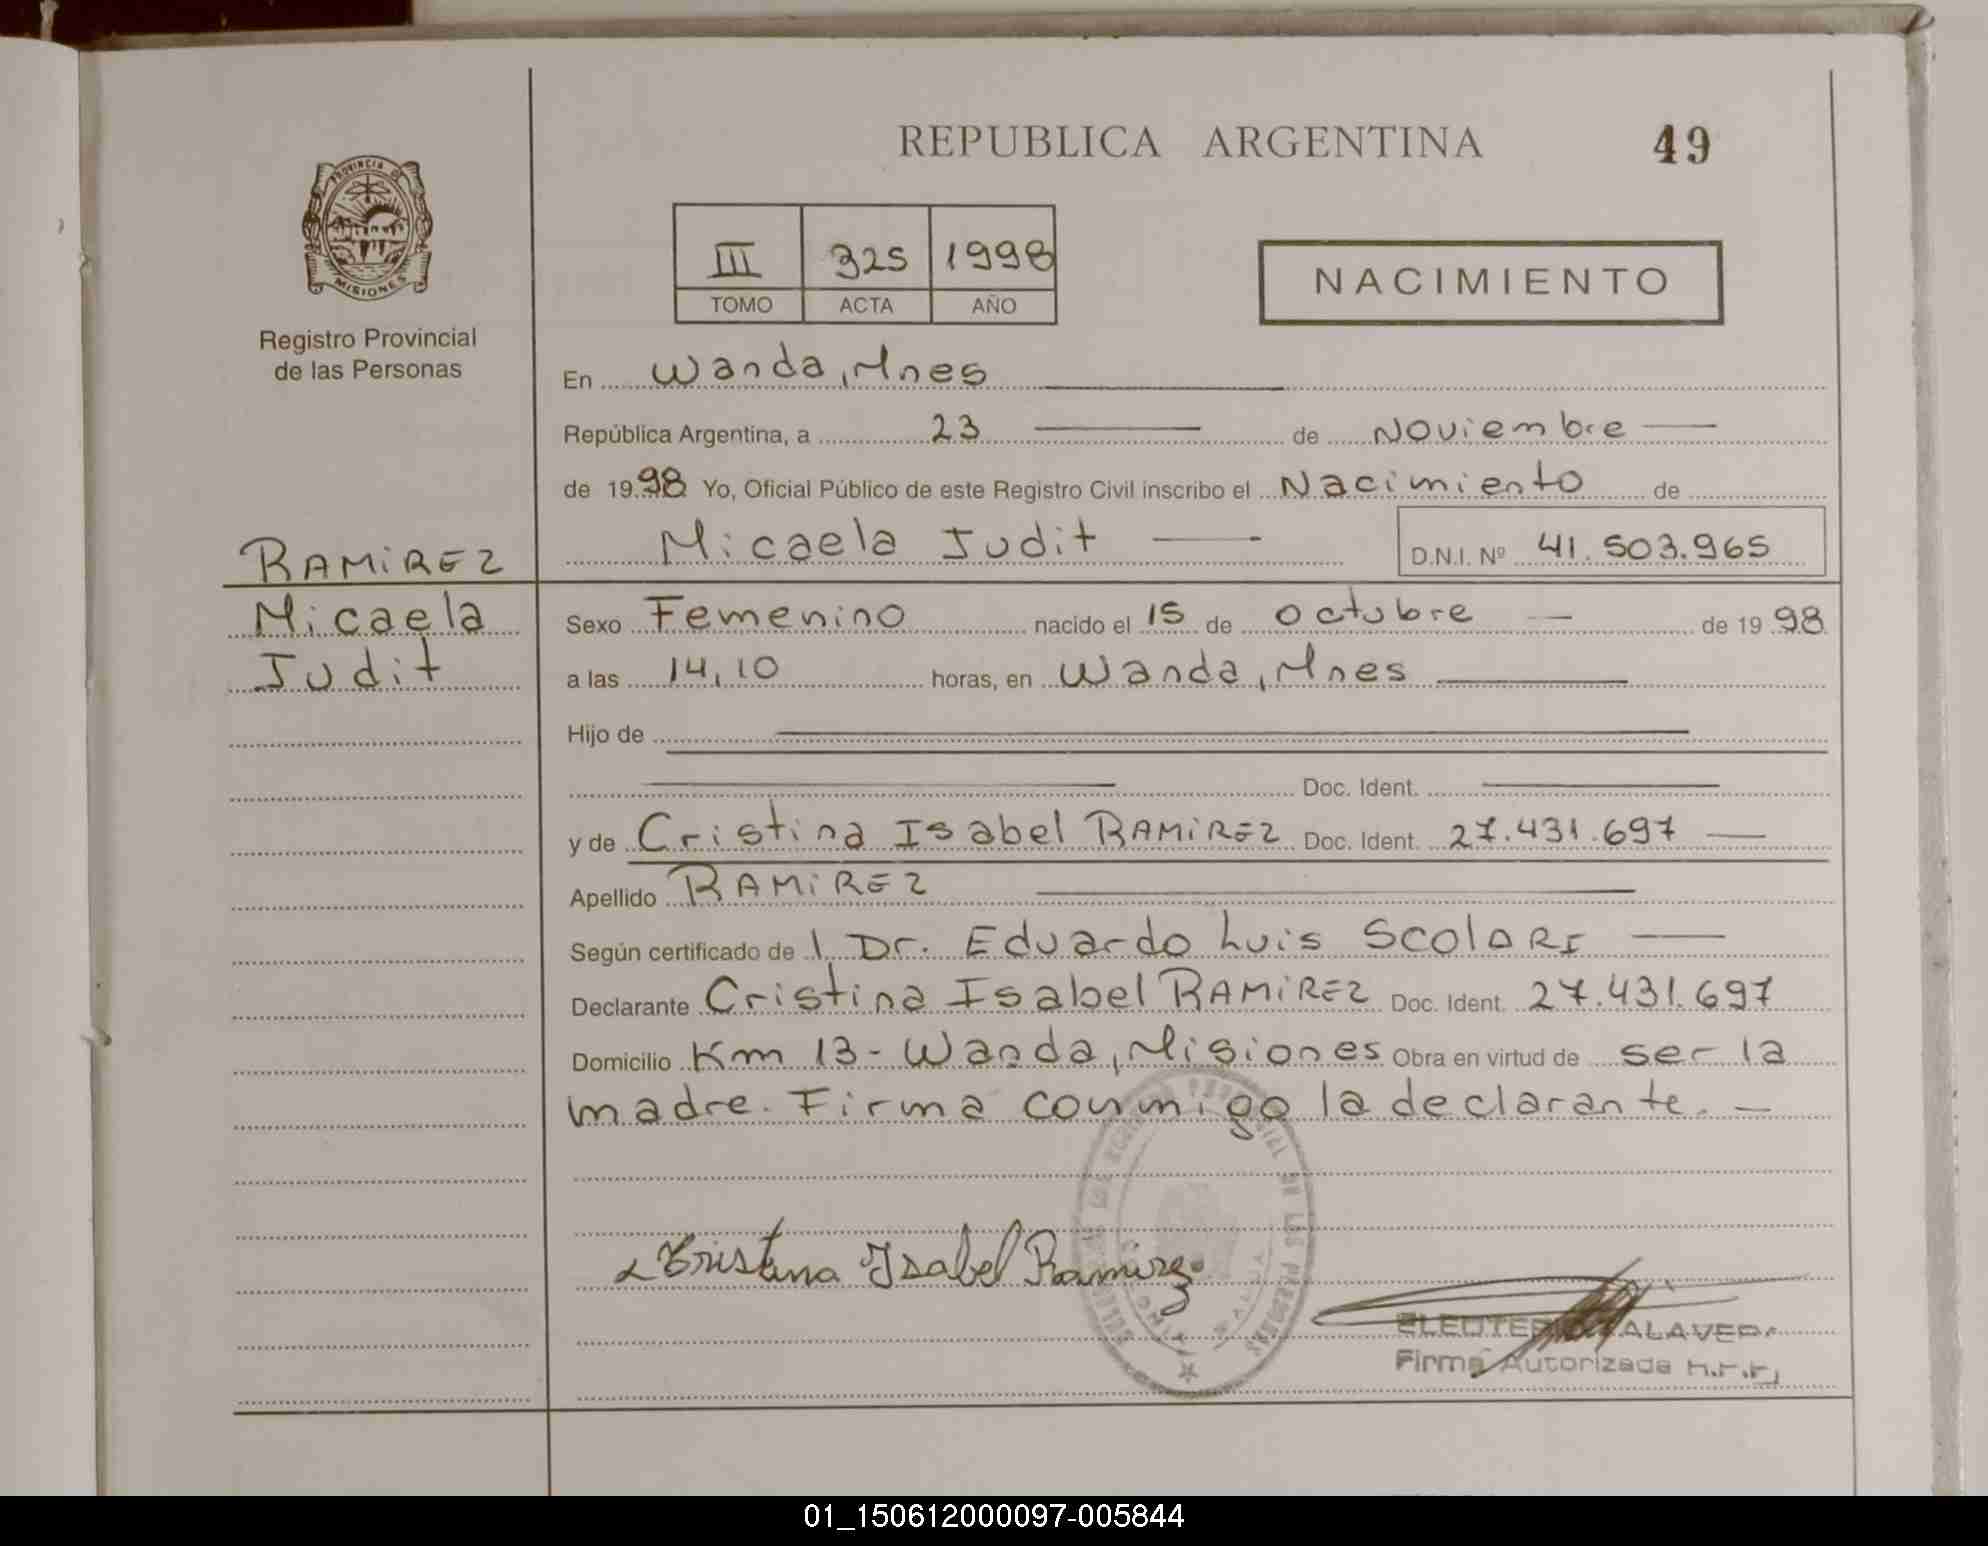 REPUBLICA ARGENTINA
49
PROVINCIA DE
MISIONES
Registro Provincial
de las Personas
III 325 1998
TOMO ACTA AÑO
NACIMIENTO
En Wanda, Mnes
República Argentina, a 23 de Noviembre
de 1998 Yo, Oficial Público de este Registro Civil inscribo el Nacimiento de
Micaela Judit D.N.I. Nº 41.503.965
RAMIREZ
Micaela
Judit
Sexo Femenino nacido el 15 de octubre de 1998
a las 14,10 horas, en Wanda, Mnes
Hijo de
Doc. Ident.
y de Cristina Isabel RAMIREZ Doc. Ident. 27.431.697
Apellido RAMIREZ
Según certificado de 1 Dr. Eduardo Luis SCOLARI
Declarante Cristina Isabel RAMIREZ Doc. Ident. 27.431.697
Domicilio Km 13 - Wanda, Misiones Obra en virtud de ser la
madre. Firma conmigo la declarante.
Cristina Isabel Ramirez
Firma Autorizada
01_150612000097-005844